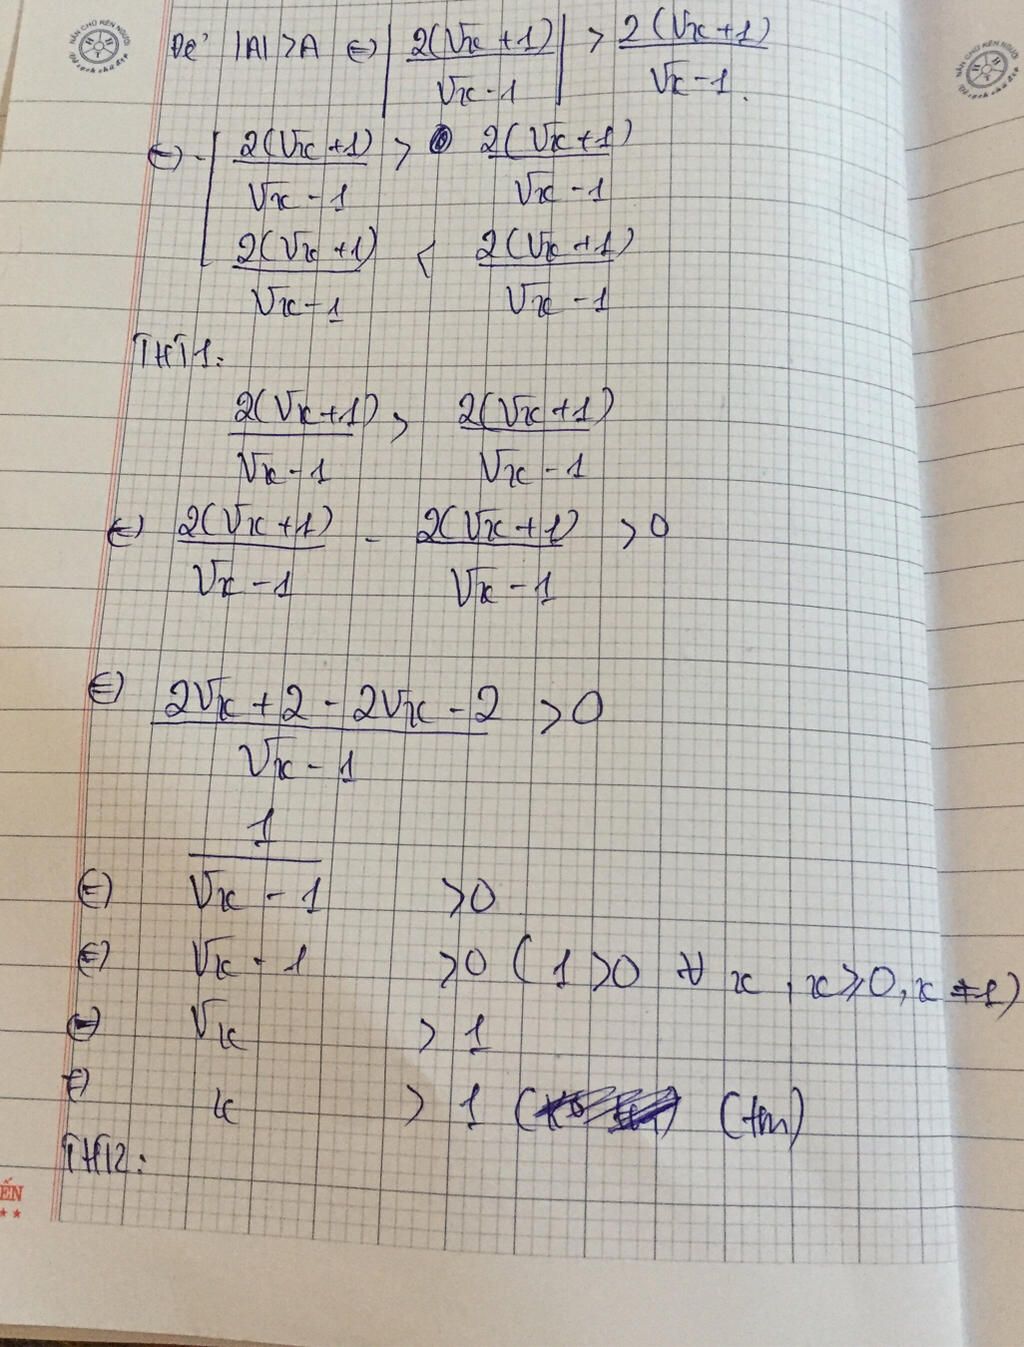 Để |A| > A ⇔ |2(√x + 1) / √x - 1| > 2(√x + 1) / √x - 1.
⇔ [ 2(√x + 1) / √x - 1 > 2(√x + 1) / √x - 1
2(√x + 1) / √x - 1 < 2(√x + 1) / √x - 1
TH1:
2(√x + 1) / √x - 1 > 2(√x + 1) / √x - 1
⇔ 2(√x + 1) / √x - 1 - 2(√x + 1) / √x - 1 > 0
⇔ 2√x + 2 - 2√x - 2 / √x - 1 > 0
⇔ 1 / √x - 1 > 0
⇔ √x - 1 > 0 (1 > 0 ∀ x, x ⩾ 0, x ≠ 1)
⇔ √x > 1
⇔ x > 1 (tm)
TH2:
ẾN